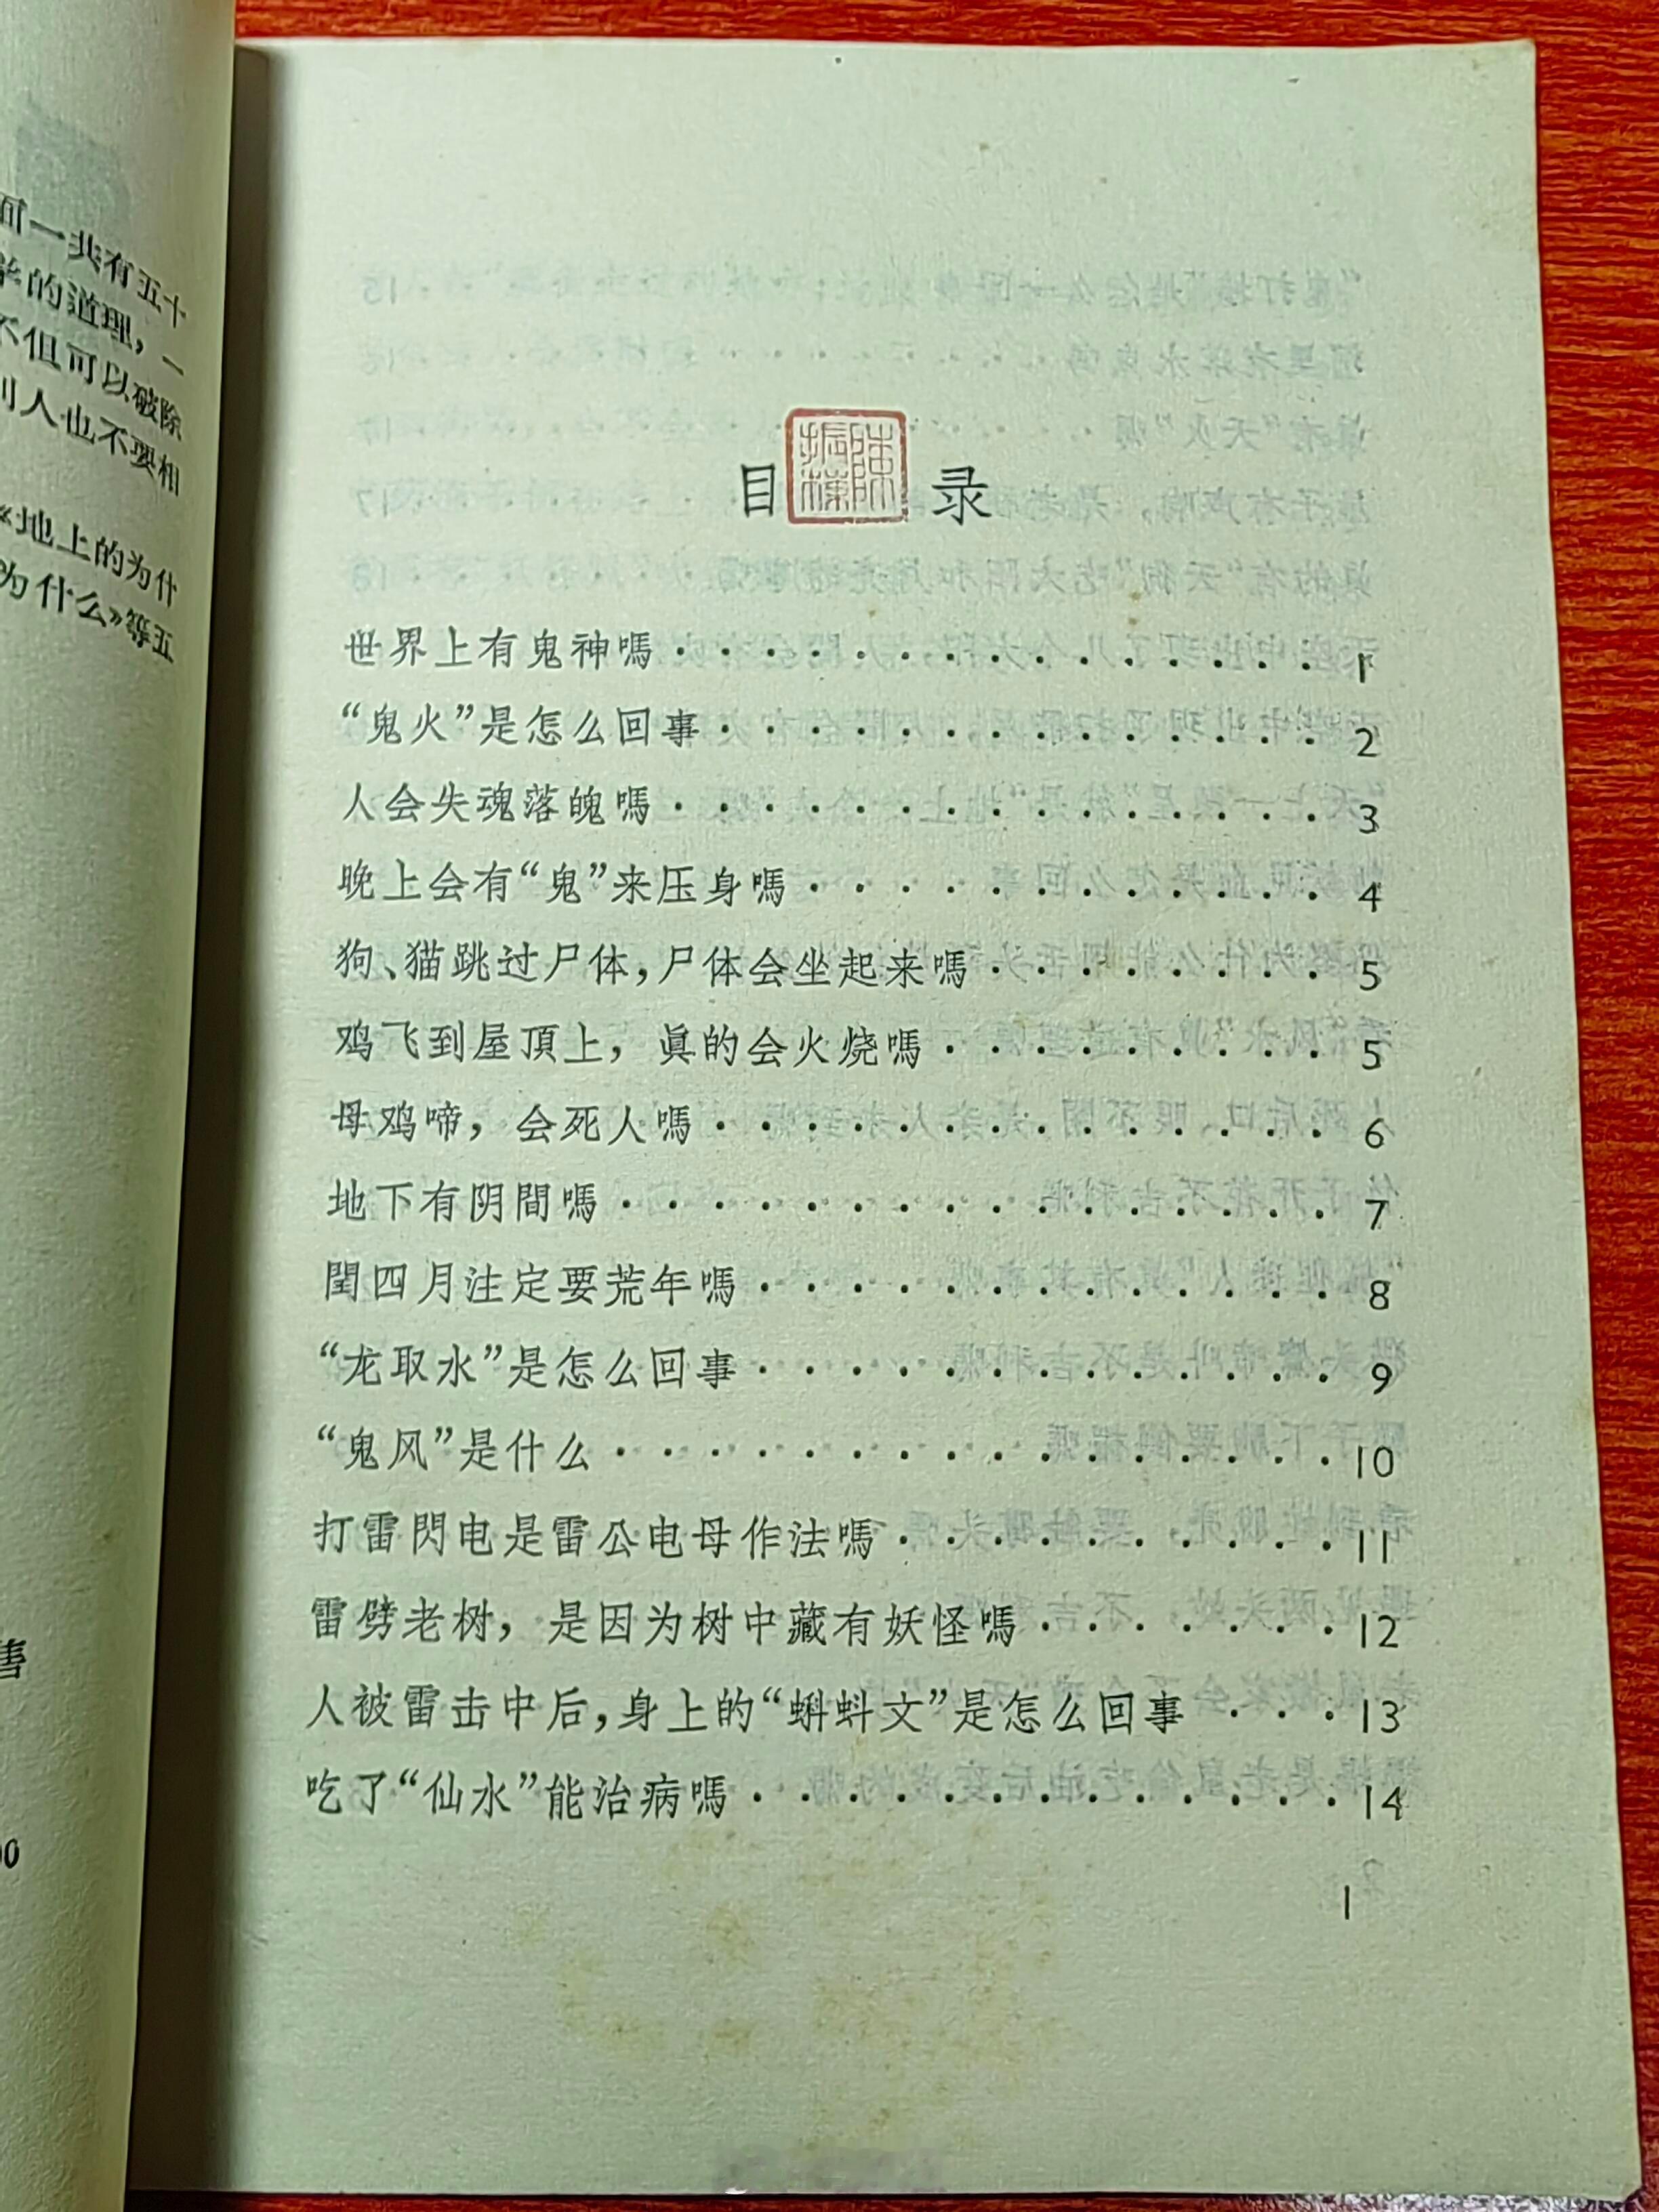 而一共有五十
的道理，一
不但可以破除
别人也不要相
《地上的为什
为什么》等五
目 录
陈振栋
世界上有鬼神嗎 · · · · · · · · · · · · · · 1
“鬼火”是怎么回事 · · · · · · · · · · · · · 2
人会失魂落魄嗎 · · · · · · · · · · · · · · 3
晚上会有“鬼”来压身嗎 · · · · · · · · · · · 4
狗、猫跳过尸体，尸体会坐起来嗎 · · · · · · · · 5
鸡飞到屋頂上，眞的会火烧嗎 · · · · · · · · · 5
母鸡啼，会死人嗎 · · · · · · · · · · · · · · 6
地下有阴間嗎 · · · · · · · · · · · · · · · · 7
閏四月注定要荒年嗎 · · · · · · · · · · · · · 8
“龙取水”是怎么回事 · · · · · · · · · · · · · 9
“鬼风”是什么 · · · · · · · · · · · · · · · · 10
打雷閃电是雷公电母作法嗎 · · · · · · · · · · 11
雷劈老树，是因为树中藏有妖怪嗎 · · · · · · · 12
人被雷击中后，身上的“蝌蚪文”是怎么回事 · · · 13
吃了“仙水”能治病嗎 · · · · · · · · · · · · · 14
1